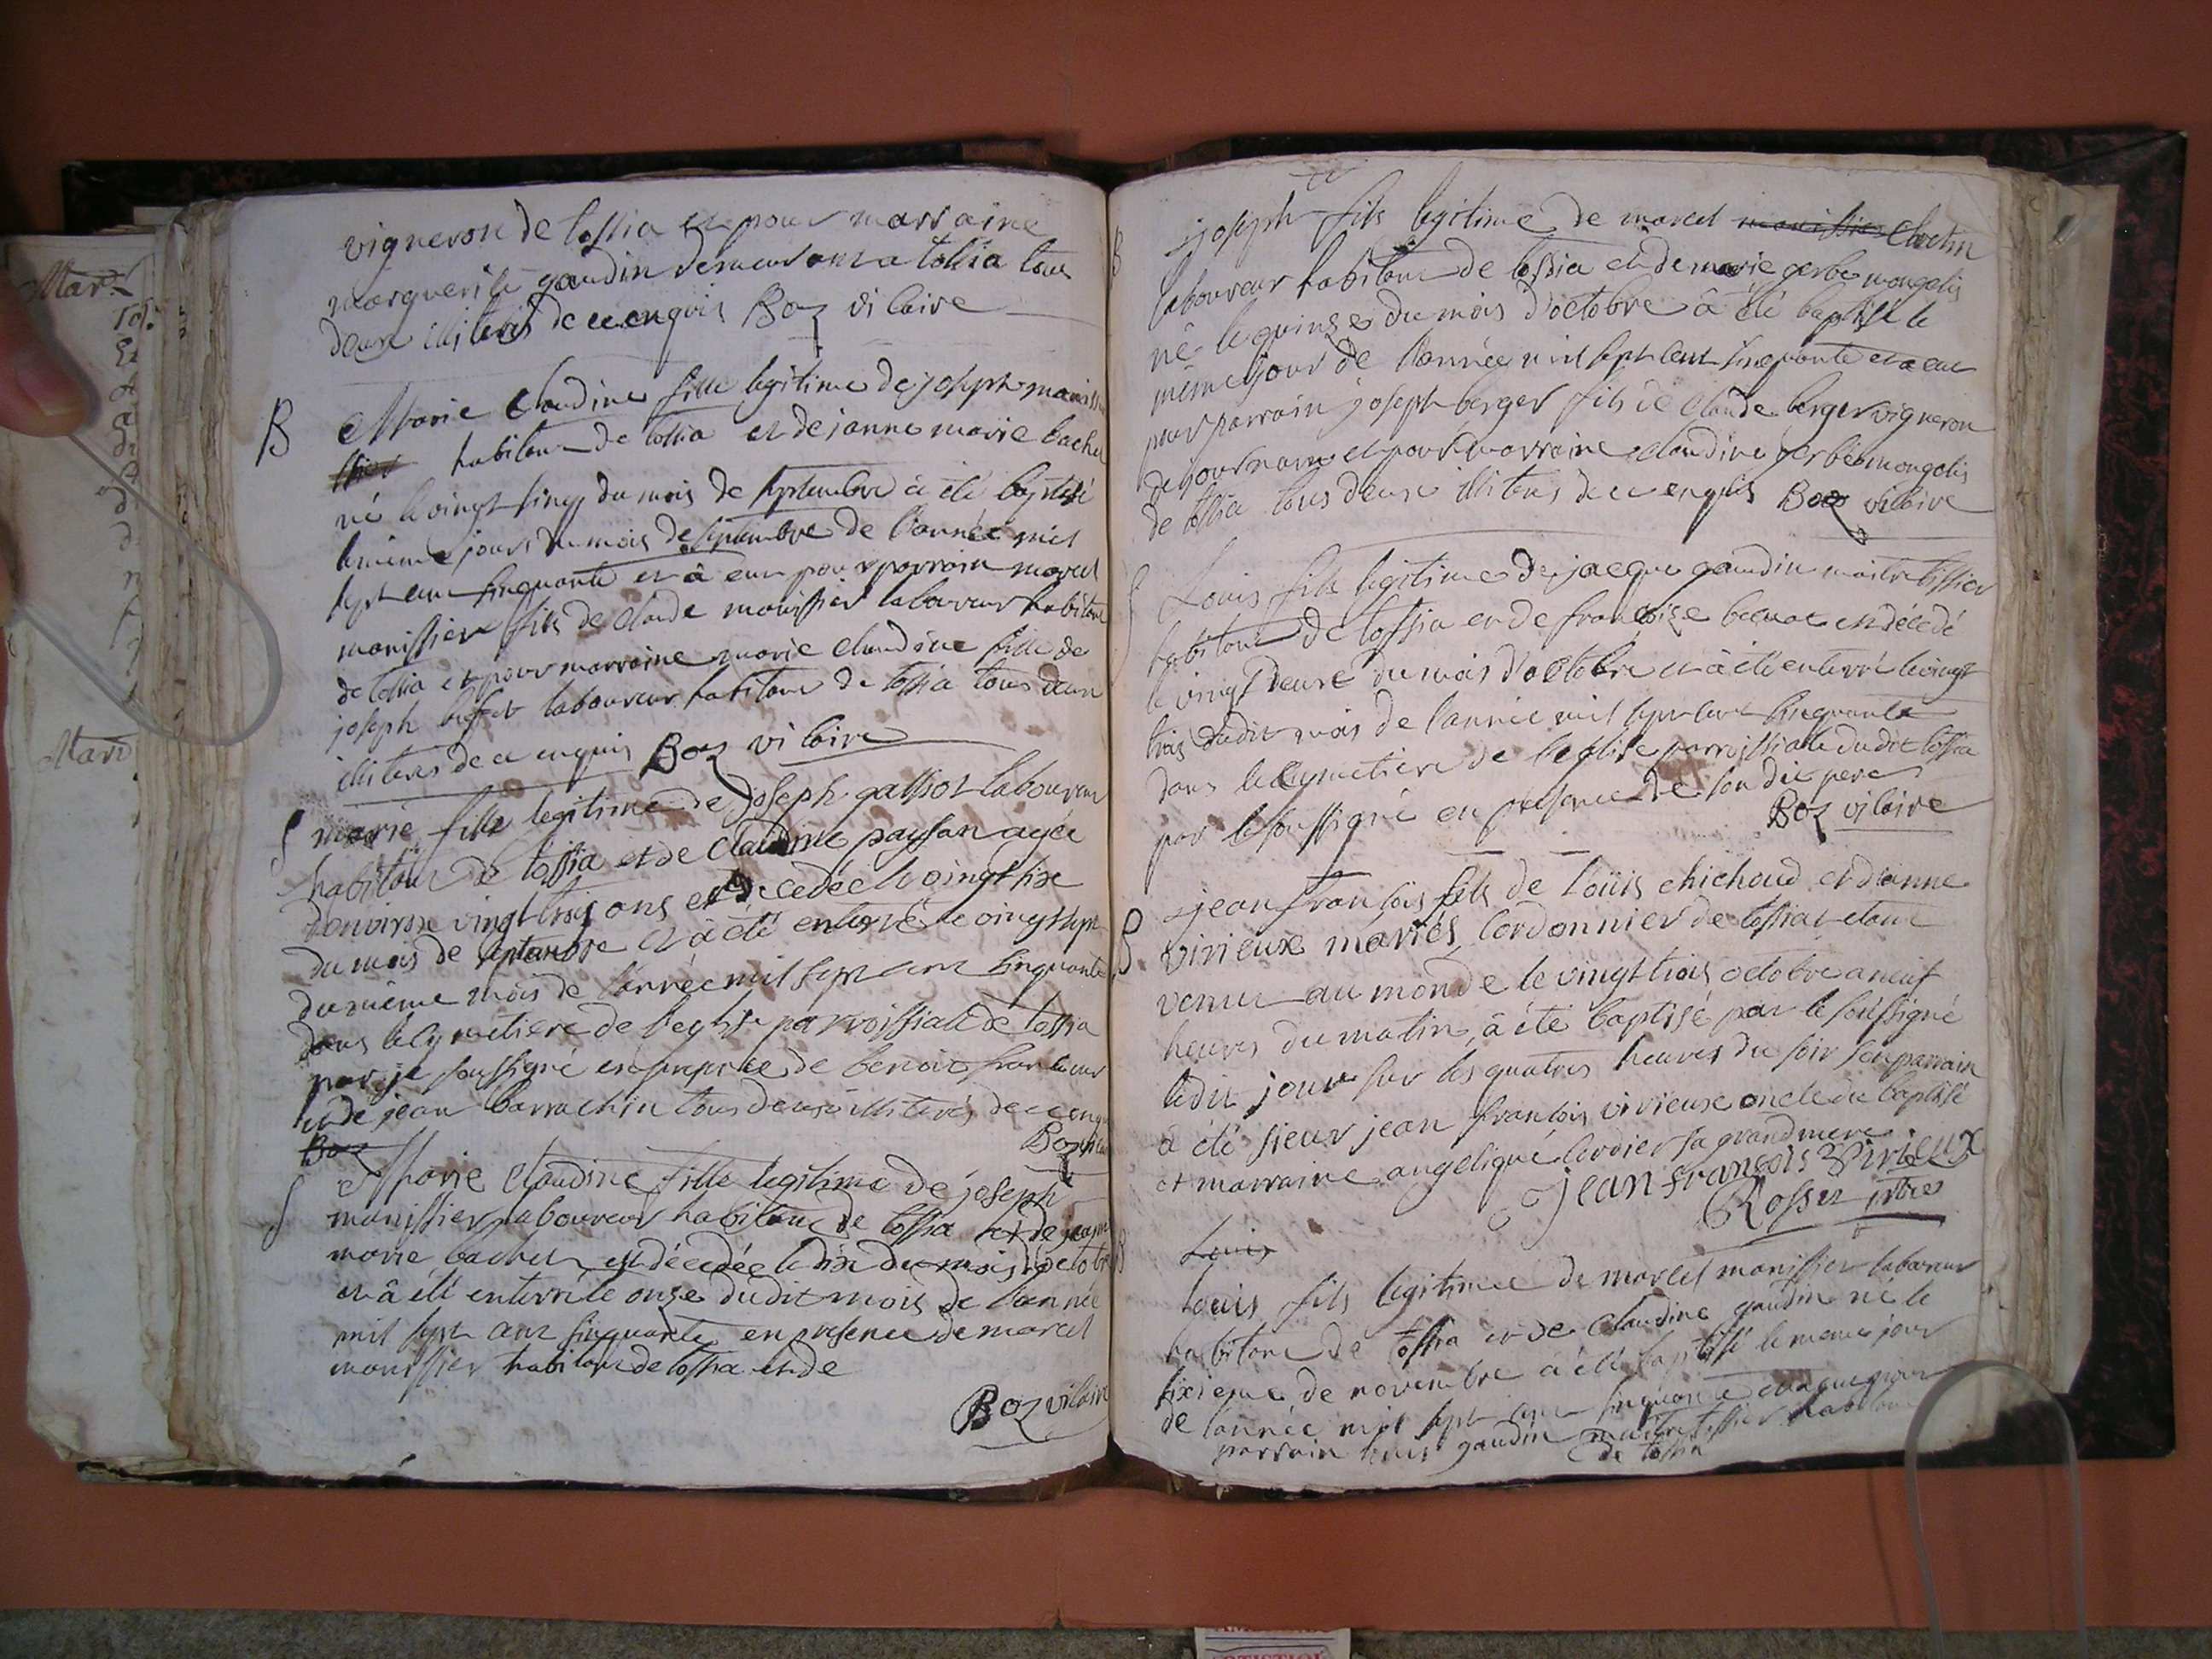 vigneron de tossia et pour marraine
marguerite gaudin demeurant a tossia tous
deux illiterés de ce enquis Boz vicaire
B
Marie Claudine fille legitime de joseph manissier
habitant de tossia et de janne marie bachet
né le vingt sinq du mois de septembre à été baptisé
le même jours du mois de septembre de l'année mil
sept cent sinquante et à eu pour parrain marcel
manissier fils de claude manissier laboureur habitant
de tossia et pour marraine marie claudine fille de
joseph laboureur habitant de tossia tous deux
illiterés de ce enquis Boz vicaire
S
marie fille legitime de joseph galliot laboureur
habitant de tossia et de claudine paysan agée
d'environ vingt trois ans est decedée le vingt six
du mois de septembre et à été enterré le vingt sept
du même mois de l'année mil sept cent sinquante
dans le cymetiere de l'eglise parroissiale de tossia
par je soussigné en presence de benoit
et de jean barrachin tous deux illiterés de ce enquis
Boz Boz vicaire
S
Marie Claudine fille legitime de joseph
manissier laboureur habitant de tossia et de jeanne
marie bachet est décedée le dix du mois d'octobre
et à été enterré le onze dudit mois de l'année
mil sept cent sinquante en presence de marcel
manissier habitant de tossia et de
Boz vicaire
B
joseph fils legitime de marcel manissier
laboureur habitant de tossia et de marie gerbe mongalis
né le quinze du mois d'octobre à été baptisé le
même jour de l'année mil sept cent sinquante et a eu
pour parrain joseph berger fils de claude berger vigneron
de journans et pour marraine claudine gerbe mongalis
de tossia tous deux illiterés de ce enquis Boz vicaire
S
Louis fils legitime de jacque gaudin maitre tissier
habitant de tossia et de françoise est décédé
le vingt deuxe du mois d'octobre et à été enterré le vingt
trois dudit mois de l'année mil sept cent sinquante
dans le cymetiere de l'eglise parroissiale dudit tossia
par le soussigné en presence de son dit pere
Boz vicaire
B
jean françois fils de Loüis chichoud et d'anne
virieux mariés, Cordonnier de tossiat etant
venu au monde le vingt trois octobre a neuf
heures du matin, à été baptisé par le soussigné
ledit jour sur les quatres heures du soir son parrain
à été sieur jean françois virieux oncle du baptisé
et marraine angelique cordier sa grand mere
jean françois Virieux
Rosset ptre
B
Louis
Louis fils legitime de marcel manissier laboureur
habitant de tossia et de claudine gaudin né le
sixieme de novembre à été baptisé le meme jour
de l'année mil sept cent sinquante et a eu pour
parrain louis gaudin maitre tissier habitant
de tossia